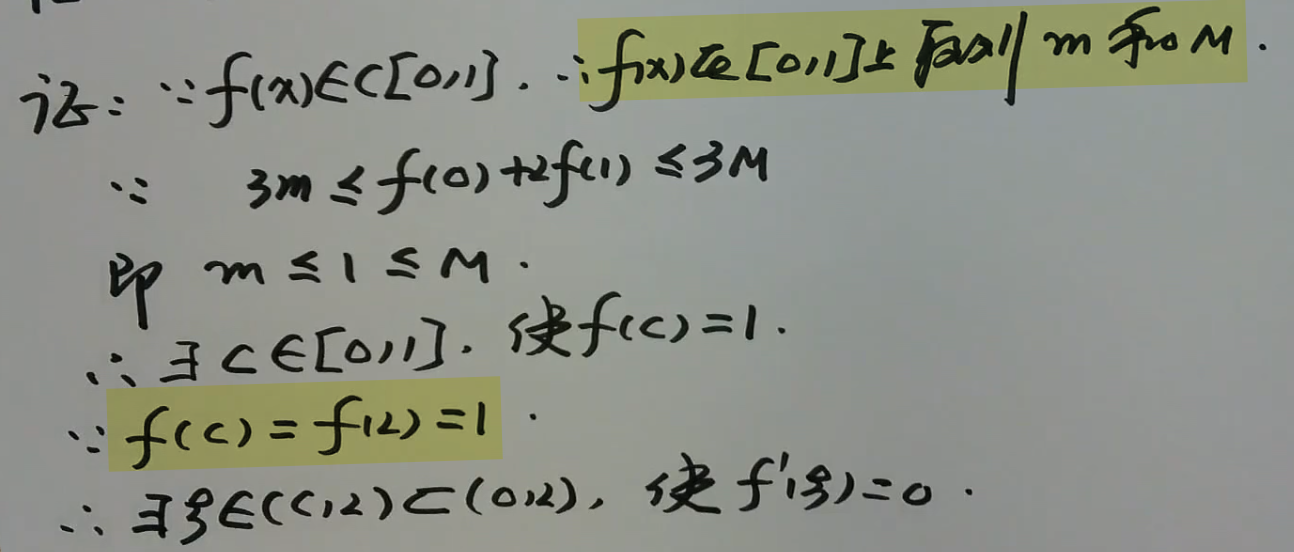 证: ∵ f(x)∈C[0,1]. ∴ f(x)在[0,1]上取到 m 和 M.
∵ 3m ≤ f(0)+2f(1) ≤ 3M
即 m ≤ 1 ≤ M.
∴ ∃ c ∈[0,1]. 使 f(c)=1.
∵ f(c) = f(2) = 1.
∴ ∃ξ∈(c,2)⊂(0,2), 使 f'(ξ)=0.